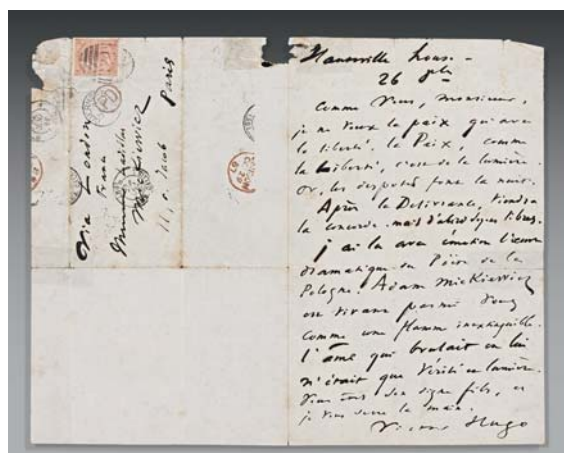 Via London
France
Monsieur Ladislas
Mickiewicz
11, r. Jacob Paris
Hauteville house –
26 7bre
Comme vous, monsieur,
je ne veux la paix qu'avec
la liberté. la Paix, comme
la Liberté, c'est de la lumière.
Or, les despotes font la nuit.
Après la Délivrance, viendra
la concorde. mais d'abord soyons libres.
j'ai lu avec émotion l'œuvre
dramatique du Poëte de la
Pologne. Adam Mickiewicz
est vivant parmi vous
comme une flamme inextinguible.
l'âme qui brulait en lui
n'était que Vérité et lumière.
Vous êtes son digne fils, et
je vous serre la main.
Victor Hugo